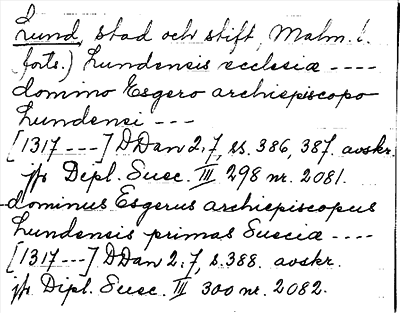 Lund, stad och stift, Malm. l.
(forts.) Lundensis ecclesiæ ----
domino Esgero archiepiscopo
Lundensi ---
[1317 ---] DDan 2:7, ss. 386, 387. avskr.
jfr Dipl. Suec. III 298 nr. 2081.
-dominus Esgerus archiepiscopus
Lundensis primas Sueciæ ----
[1317 ---] DDan 2:7, s. 388. avskr.
jfr Dipl. Suec. III 300 nr. 2082.